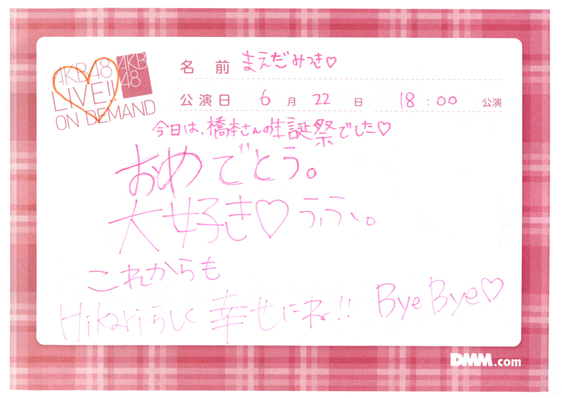 AKB48
LIVE!!
ON DEMAND
AKB
48
名 前 まえだみつき♡
公演日 6 月 22 日 18:00 公演
今日は、橋本さんの生誕祭でした♡
おめでとう。
大好き♡ うふふ。
これからも
Hikariらしく 幸せにね!! Bye Bye♡
DMM.com